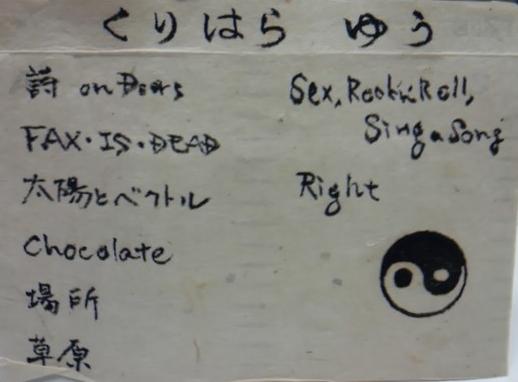 くりはら ゆう
詩 on Doors
FAX・IS・DEAD
太陽とベクトル
Chocolate
場所
草原
Sex, Rock'n Roll,
Sing a Song
Right